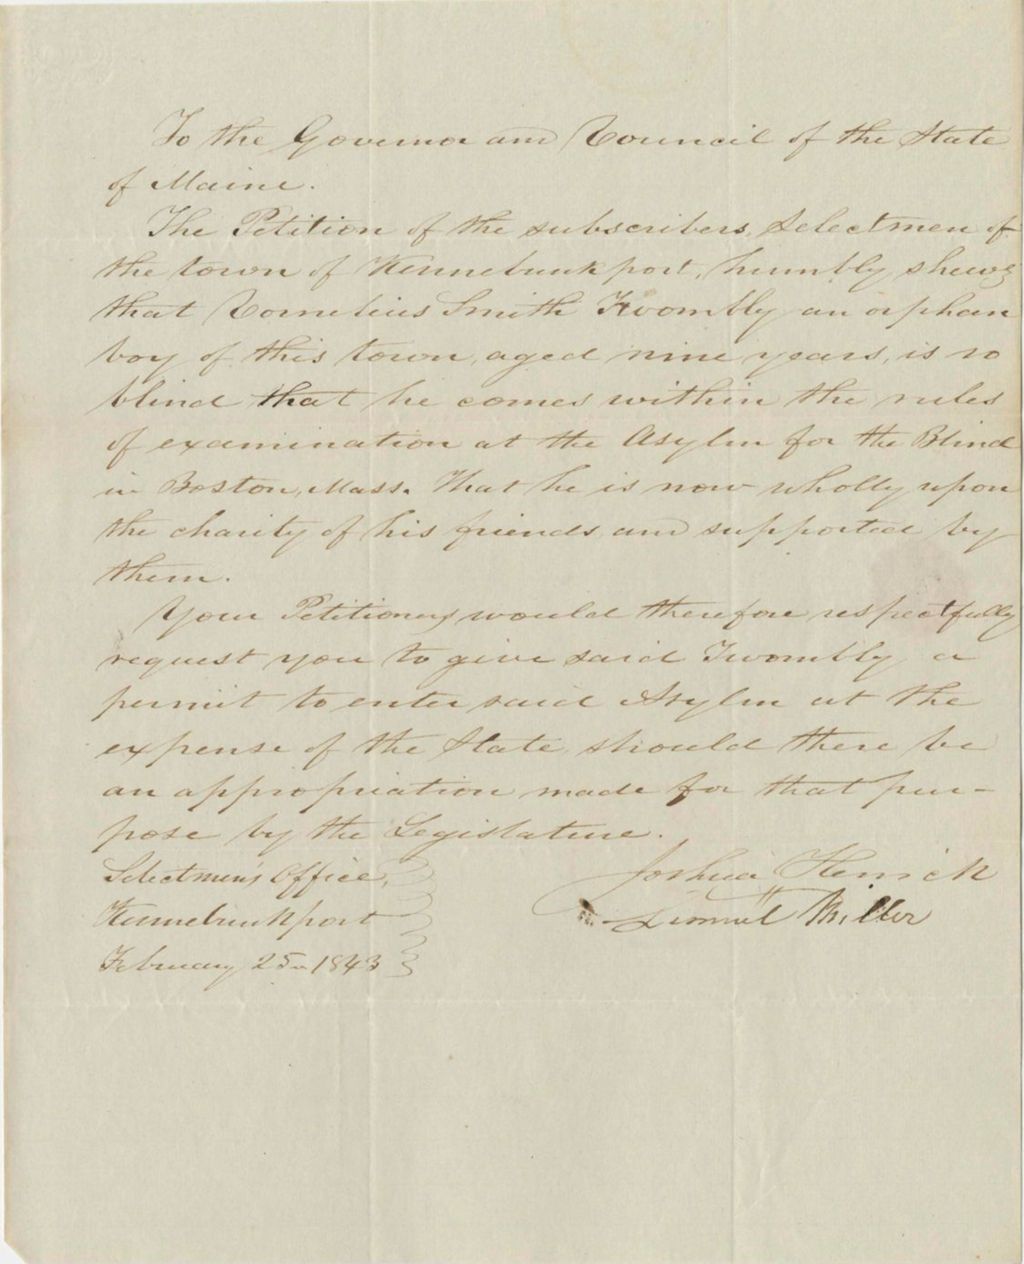 To the Governor and Council of the State
of Maine.
The Petition of the subscribers, Selectmen of
the town of Kennebunkport, humbly shews
that Cornelius Smith Twombly an orphan
boy of this town, aged nine years, is so
blind that he comes within the rules
of examination at the Asylm for the Blind
in Boston, Mass. That he is now wholly upon
the charity of his friends and supported by
them.
Your Petitioners would therefore respectfully
request you to give said Twombly a
permit to enter said Asylm at the
expense of the State, should there be
an appropriation made for that pur-
pose by the Legislature.
Selectmen's Office,
Kennebunkport
February 25 1843
Joshua Herrick
Lemuel Miller